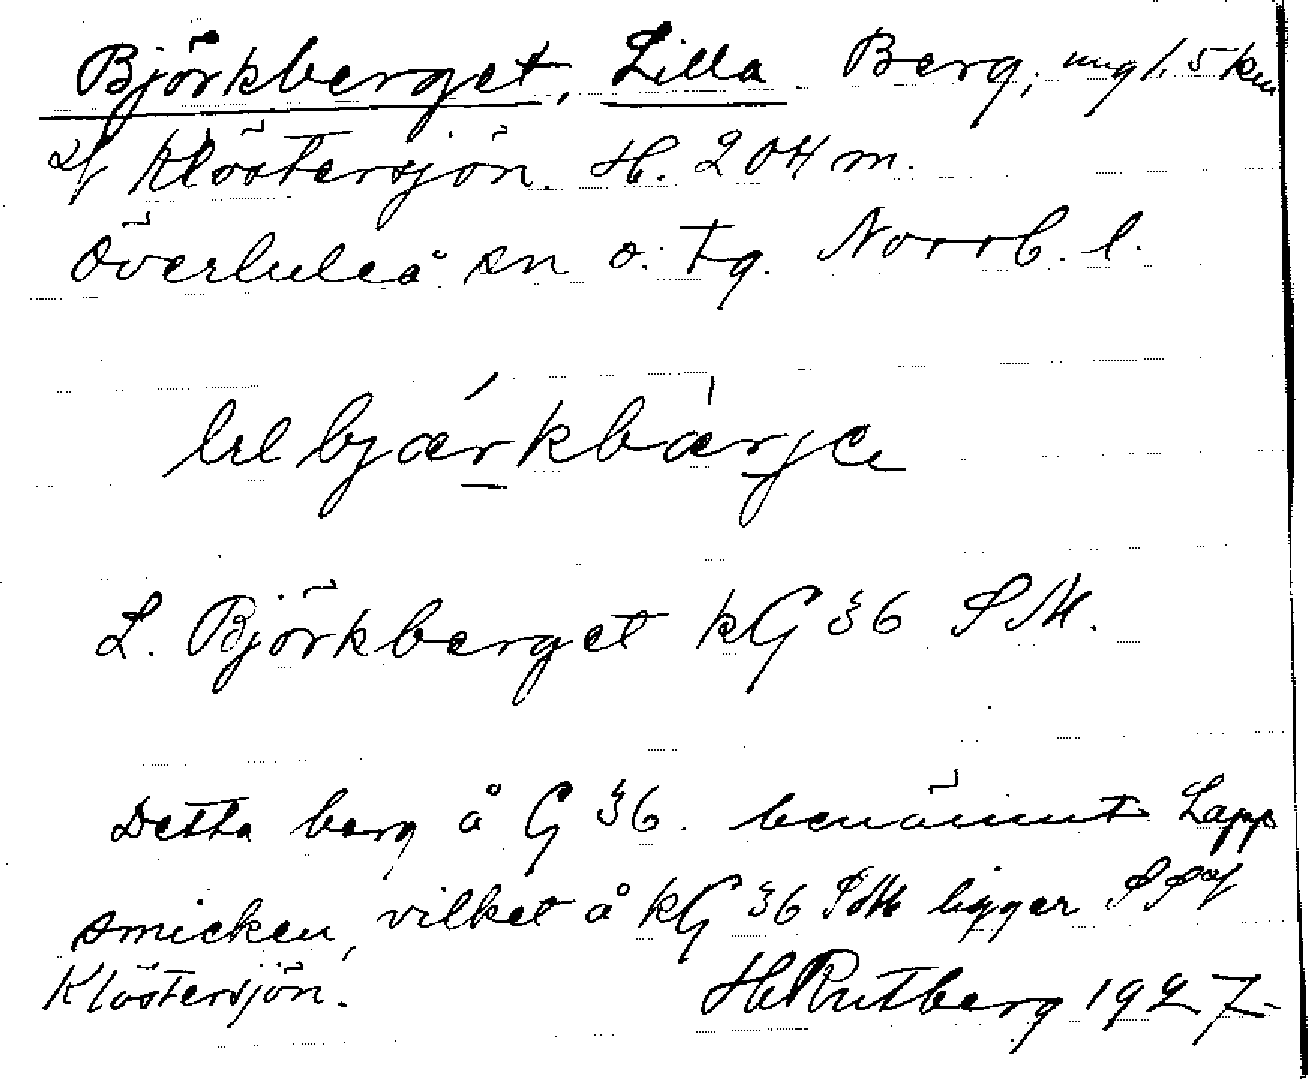 Björkberget, Lilla Berg, ung 1.5 km
af Klöstersjön. H. 204 m.
Överluleå sn o. tg. Norrb. l.
lɪl bjærkbærje
L. Björkberget kG 36 SM.
Detta berg å G 36. benämnt Lapp
smicken, vilket å kG 36 SM ligger
Klöstersjön. H Rutberg 1927